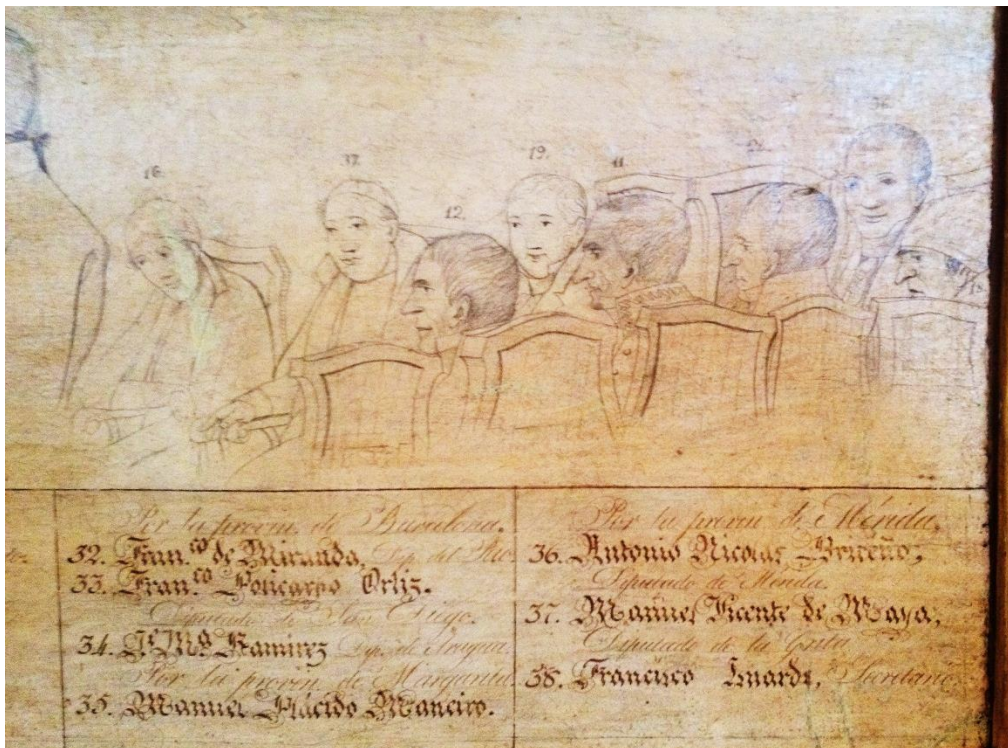 16.
37.
19.
11.
12.
12.
38.
Por la provin. de Barcelona.
32. Fran.co de Miranda, Dip. del Pao.
33. Fran.co Policarpo Ortiz.
Diputado de San Diego.
34. J.e M.a Ramirez Dip. de Aragua.
Por la provin. de Margarita
35. Manuel Plácido Maneiro.
Por la provin. de Mérida.
36. Antonio Nicolas Briceño,
Diputado de Mérida.
37. Manuel Vicente de Maya,
Diputado de la Grita
38. Francisco Isnardi, Secretario.